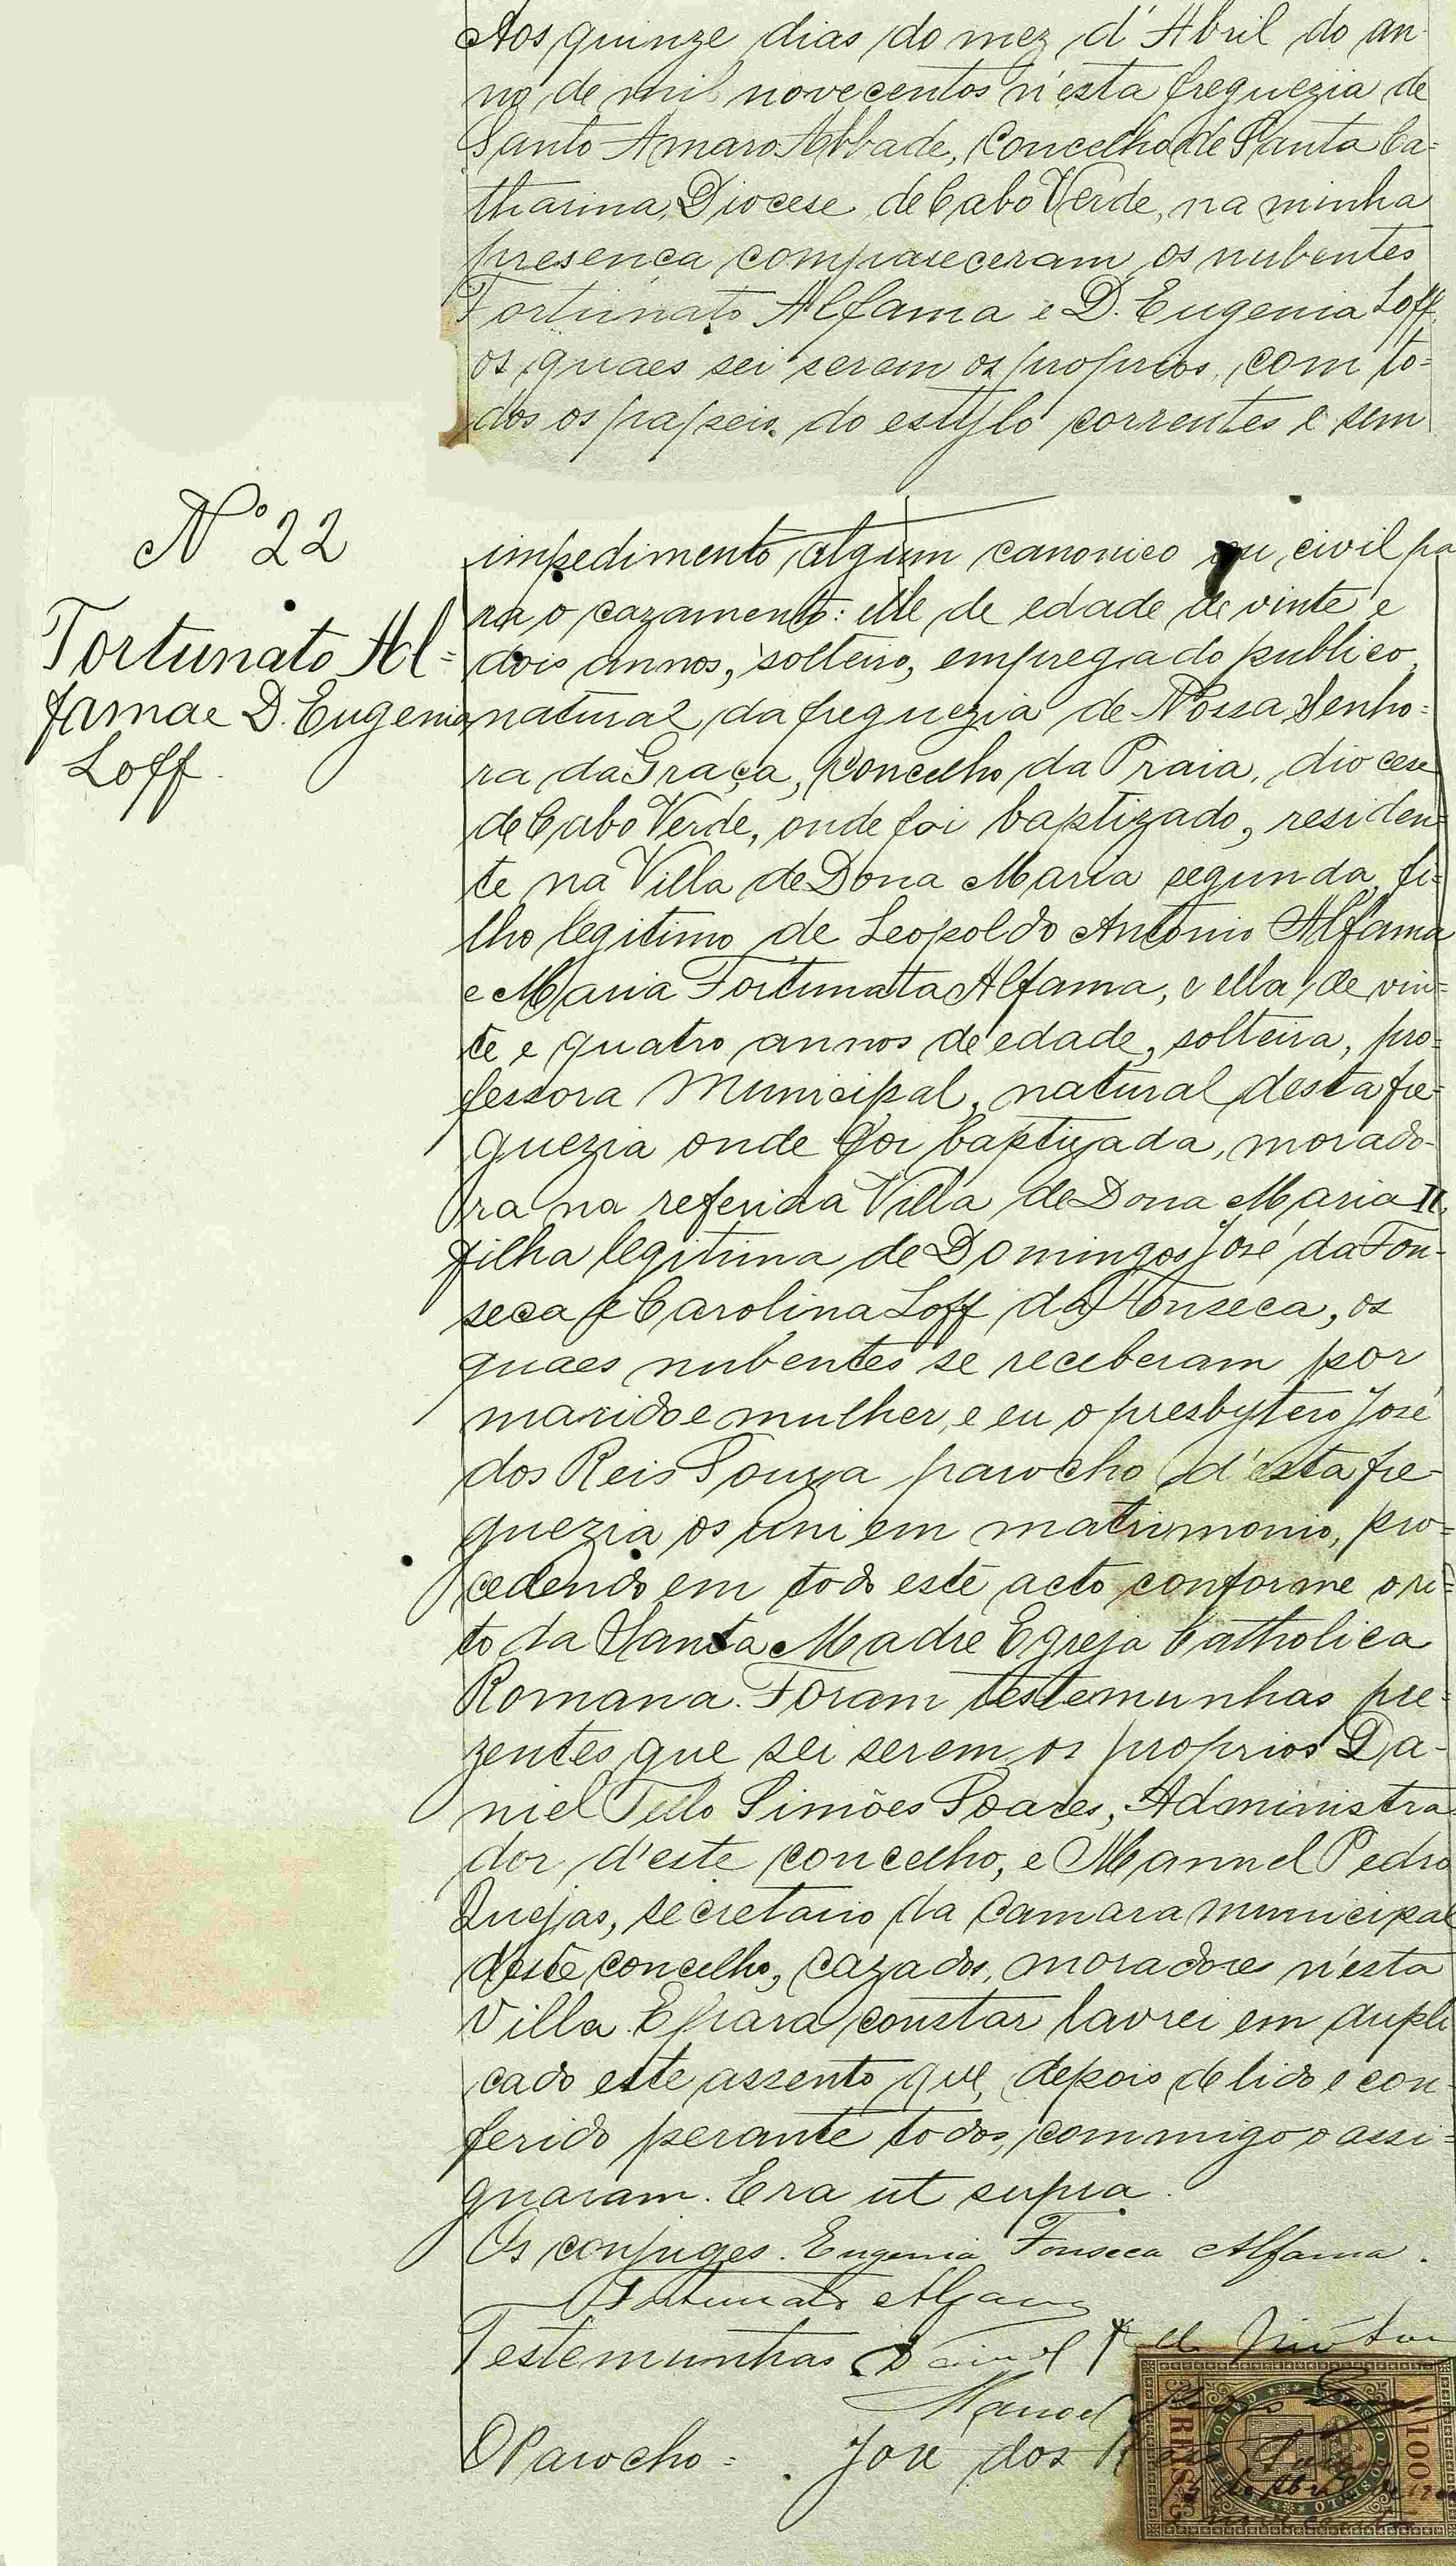 Aos quinze dias do mez d'Abril do an-
no de mil novecentos n'esta freguezia de
Santo Amaro Abbade, Concelho de Santa Ca=
tharina, Diocese de Cabo Verde, na minha
presença compareceram os nubentes
Fortunato Alfama e D. Eugenia Loff,
os quaes sei serem os proprios, com to=
dos os papeis do estylo correntes e sem
Nº 22
Fortunato Al=
fama e D. Eugenia
Loff.
impedimento algum canonico ou civil pa
ra o cazamento: elle de edade de vinte e
dois annos, solteiro, empregado publico,
natural da freguezia de Nossa Senho=
ra da Graça, Concelho da Praia, diocese
de Cabo Verde, onde foi baptizado, residen=
te na Villa de Dona Maria segunda, fi=
lho legitimo de Leopoldo Antonio Alfama
e Maria Fortunata Alfama, e ella de vin=
te e quatro annos de edade, solteira, pro=
fessora Municipal, natural desta fre=
guezia onde foi baptizada, morado-
ra na referida Villa de Dona Maria II,
filha legitima de Domingos José da Fon-
seca e Carolina Loff da Fonseca, os
quaes nubentes se receberam por
marido e mulher, e eu o presbytero José
dos Reis Souza parocho d'esta fre-
guezia os uni em matrimonio, pro=
cedendo em todo este acto conforme o ri=
to da Santa Madre Egreja Catholica
Romana. Foram testemunhas pre=
zentes que sei serem os proprios Da-
niel Tello Simões Soares, Administra
dor d'este concelho, e Manuel Pedro
Quejas, secretario da Camara municipal
d'este concelho, cazados, moradores n'esta
Villa. E para constar lavrei em dupli
cado este assento que, depois de lido e con
ferido perante todos, commigo o assi=
gnaram. Era ut supra.
Os conjuges. Eugenia Fonseca Alfama.
Fortunato Alfama
Testemunhas Daniel T. de
Manoel Pedro
O Parocho = José dos Reis
REIS 100
IMPOSTO DO SELLO